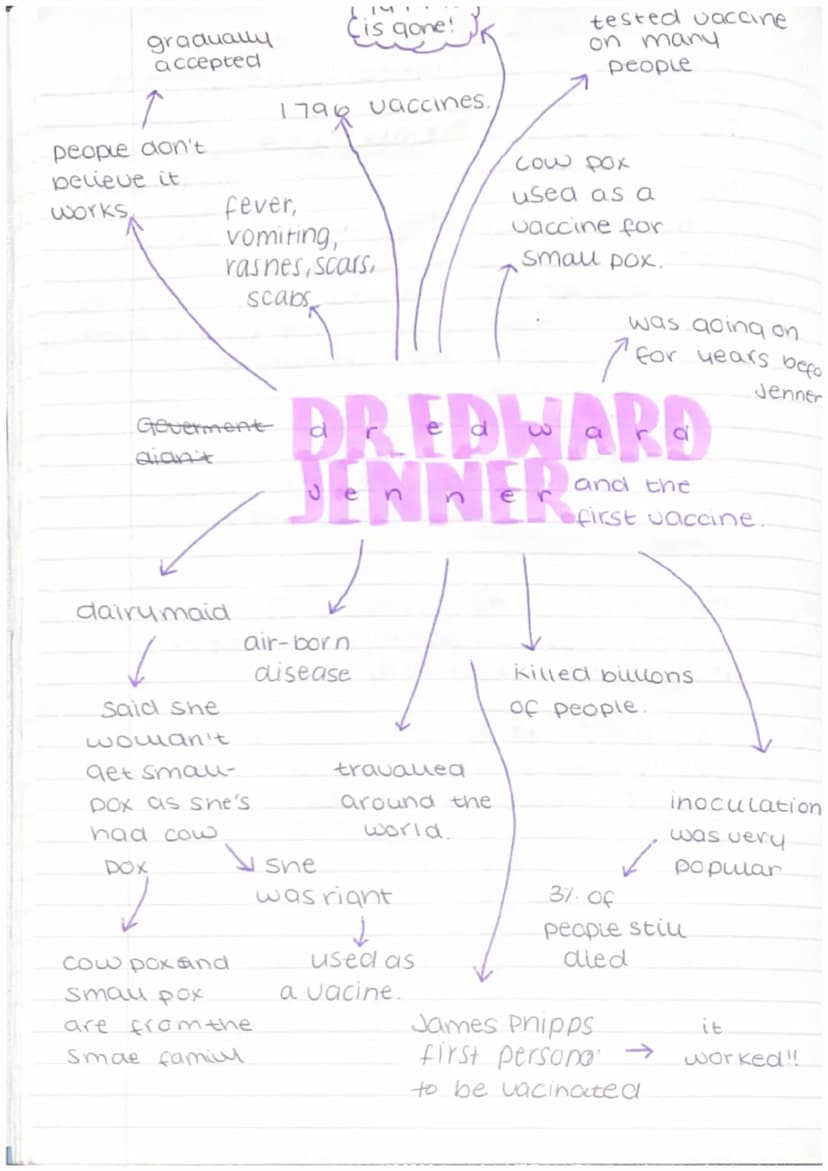 is gone!
gradually
accepted
tested vaccine
on many
people
1796 vaccines.
people don't
believe it
works
fever,
vomiting,
rasnes, scars,
scabs
cow pox
used as a
vaccine for
small pox.
was going on
for years befo
Jenner
Goverment
didn't
DR. EDWARD
dr edward
JENNER
Jenner
and the
first vaccine.
dairymaid
said she
wouldn't
get small-
pox as she's
had cow
pox
she
was right
used as
a vacine.
cow pox and
small pox
are from the
smae family
air-born
disease
travalled
around the
world.
killed billions
of people.
James Phipps
first person
to be vacinated
it
worked!!
inoculation
was very
popular
3% of
people still
died